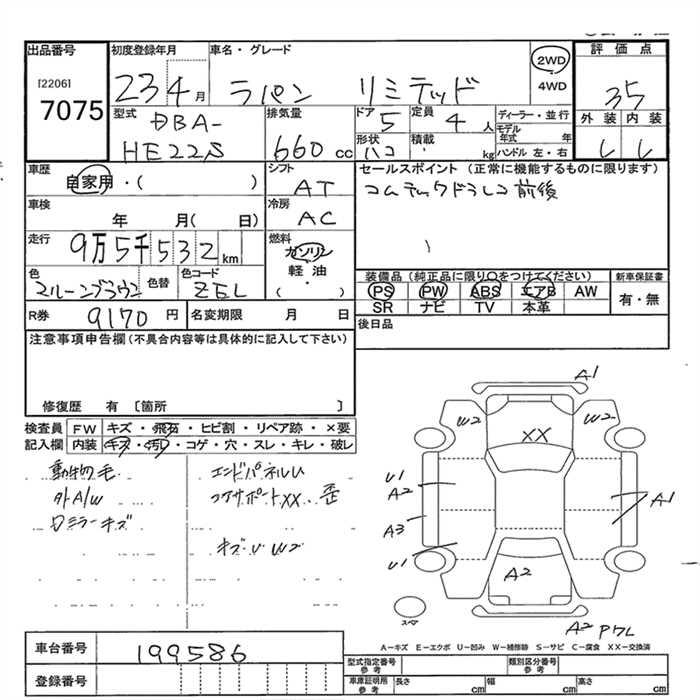 出品番号
[2206]
7075
初度登録年月
23 4月
車名・グレード
ラパン リミテッド
2WD
4WD
評価点
3.5
外装 内装
型式
DBA-
HE22S
排気量
660 cc
ドア
5
定員
4 人
形状
ハコ
積載
kg
ディーラー・並行
モデル年式 年
ハンドル 左・右
車歴
自家用・( )
シフト
AT
セールスポイント(正常に機能するものに限ります)
コムテックドラレコ前後
車検
年 月( 日)
冷房
AC
走行
9万5千532 km
燃料
ガソリン
軽油
( )
色
マルーンブラウン
色替
色コード
ZEL
装備品(純正品に限り○をつけてください)
PS PW ABS エアB AW
SR ナビ TV 本革
新車保証書
有・無
R券
9170 円
名変期限 月 日
後日品
注意事項申告欄(不具合内容等は具体的に記入して下さい)
修復歴 有 〔箇所 〕
検査員記入欄
FW キズ・飛石・ヒビ割・リペア跡・×要
内装 キズ・汚れ・コゲ・穴・スレ・キレ・破レ
動物毛
外A/W
Dミラーキズ
エンドパネルU
コアサポートXX 歪
キズ・U W2
A1
W2
W2
XX
U1
A2
A1
A3
U1
A2
スペア
A2 PクL
A-キズ E-エクボ U-凹み W-補修跡 S-サビ C-腐食 XX-交換済
車台番号
199586
登録番号
型式指定番号 参考
類別区分番号 参考
車庫証明用 参考
長さ cm
幅 cm
高さ cm